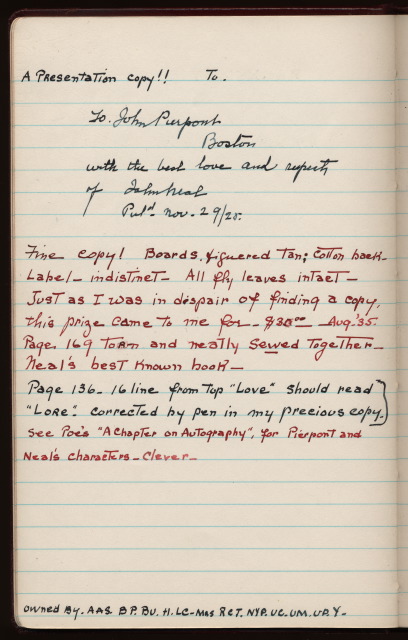 A Presentation copy!! To.
To. John Pierpont
Boston
with the best love and respects
of John Neal
Pub'd. Nov. 29/28.
Fine copy! Boards, figuered tan; cotton back_
Label_ indistinct_ All fly leaves intact_
Just as I was in despair of finding a copy,
this prize came to me for_ $30.00 _ Aug.'35.
Page 169 torn and neatly sewed together_
Neal's best known book_
Page 136_ 16 line from top "Love" should read
"Lore". corrected by pen in my precious copy_
See Poe's "A Chapter on Autography", for Pierpont and
Neal's characters_ Clever_
Owned By. AAS. BP. BU. H. LC_ Mrs RCT. NYP. UC. UM. UP. Y_